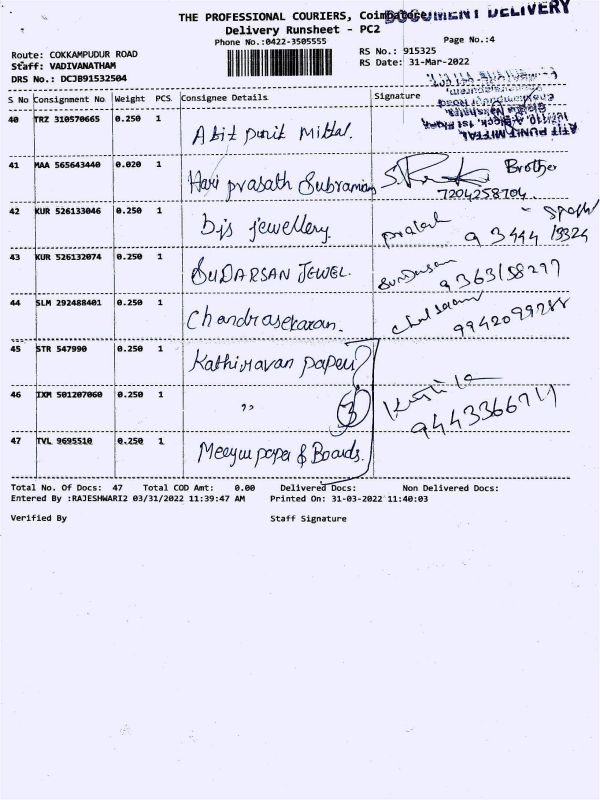 DOCUMENT DELIVERY
THE PROFESSIONAL COURIERS, Coimbatore
Delivery Runsheet - PC2
Phone No.:0422-3505555 Page No.:4
Route: COKKAMPUDUR ROAD RS No.: 915325
Staff: VADIVANATHAM RS Date: 31-Mar-2022
DRS No.: DCJB91532504
S No Consignment No Weight PCS. Consignee Details Signature
ATIT PUNIT MITTAL
40 TRZ 310570665 0.250 1 Atit Punit Mittal.
41 MAA 565643440 0.020 1 Hari prasath Subramian Brother
7204258704
42 KUR 526133046 0.250 1 Djs jewellery.
43 KUR 526132074 0.250 1 SUDARSAN JEWEL. Sundarsan
9363158277
44 SLM 292488401 0.250 1 Chandrasekaran.
9942099288
45 STR 547990 0.250 1 Kathiravan paper
46 IXM 501207060 0.250 1 ,, 3
47 TVL 9695510 0.250 1 paper & Boards.
Total No. Of Docs: 47 Total COD Amt: 0.00 Delivered Docs: Non Delivered Docs:
Entered By :RAJESHWARI2 03/31/2022 11:39:47 AM Printed On: 31-03-2022 11:40:03
Verified By Staff Signature